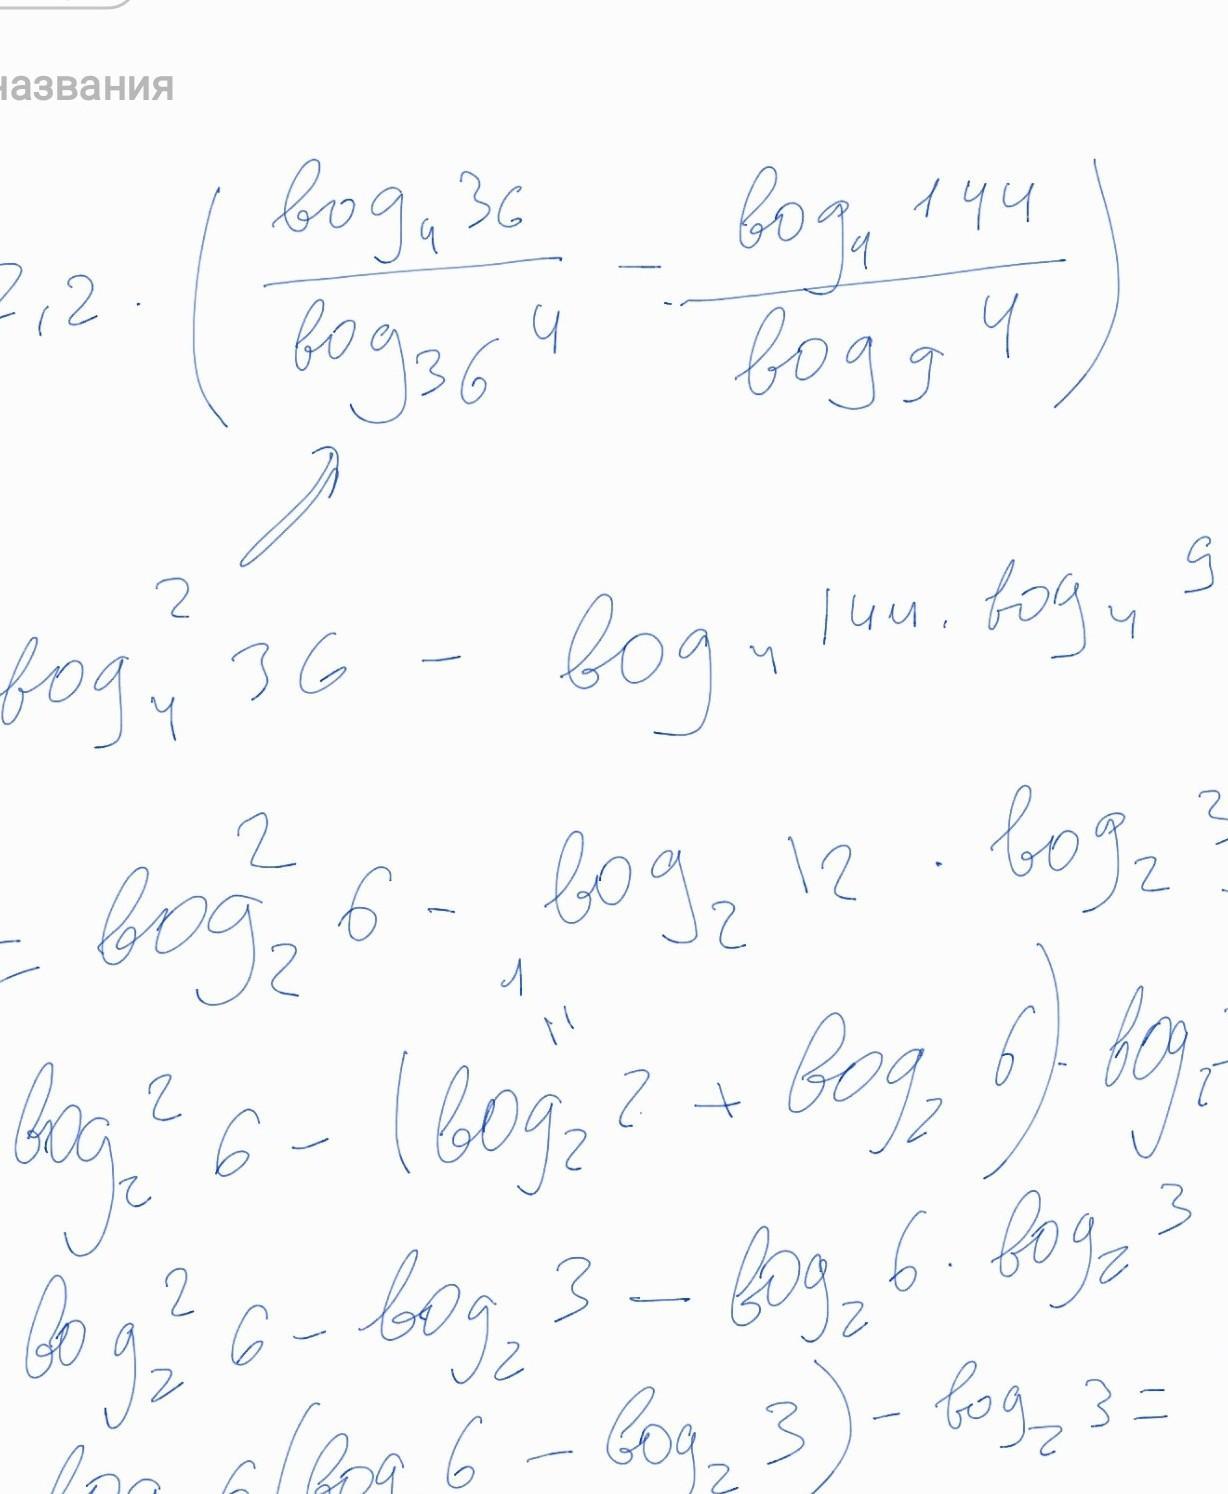 названия
2,2 · ( log₄ 36 / log₃₆ 4 − log₄ 144 / log₉ 4 )
log₄² 36 − log₄ 144 · log₄ 9
= log₂² 6 − log₂ 12 · log₂ 3
1
"
log₂² 6 − (log₂ 2 + log₂ 6) · log₂
log₂² 6 − log₂ 3 − log₂ 6 · log₂ 3
log 6 (log 6 − log₂ 3) − log₂ 3 =